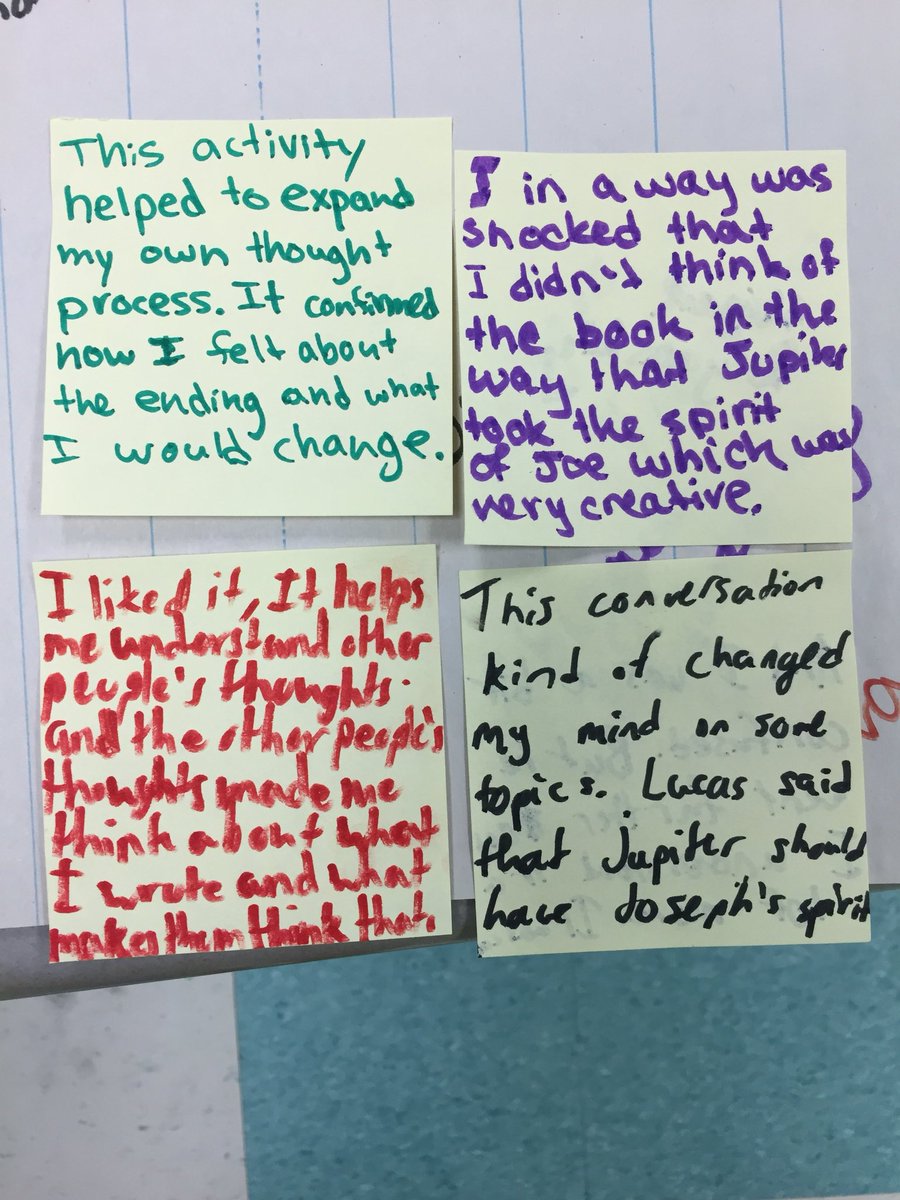 This activity
helped to expand
my own thought
process. It confirmed
how I felt about
the ending and what
I would change.
I in a way was
shocked that
I didn't think of
the book in the
way that Jupiter
took the spirit
of Joe which was
very creative.
I liked it, It helps
me understand other
people's thoughts.
and the other people's
thoughts made me
think about what
I wrote and what
makes them think that.
This conversation
kind of changed
my mind on some
topics. Lucas said
that Jupiter should
have Joseph's spirit